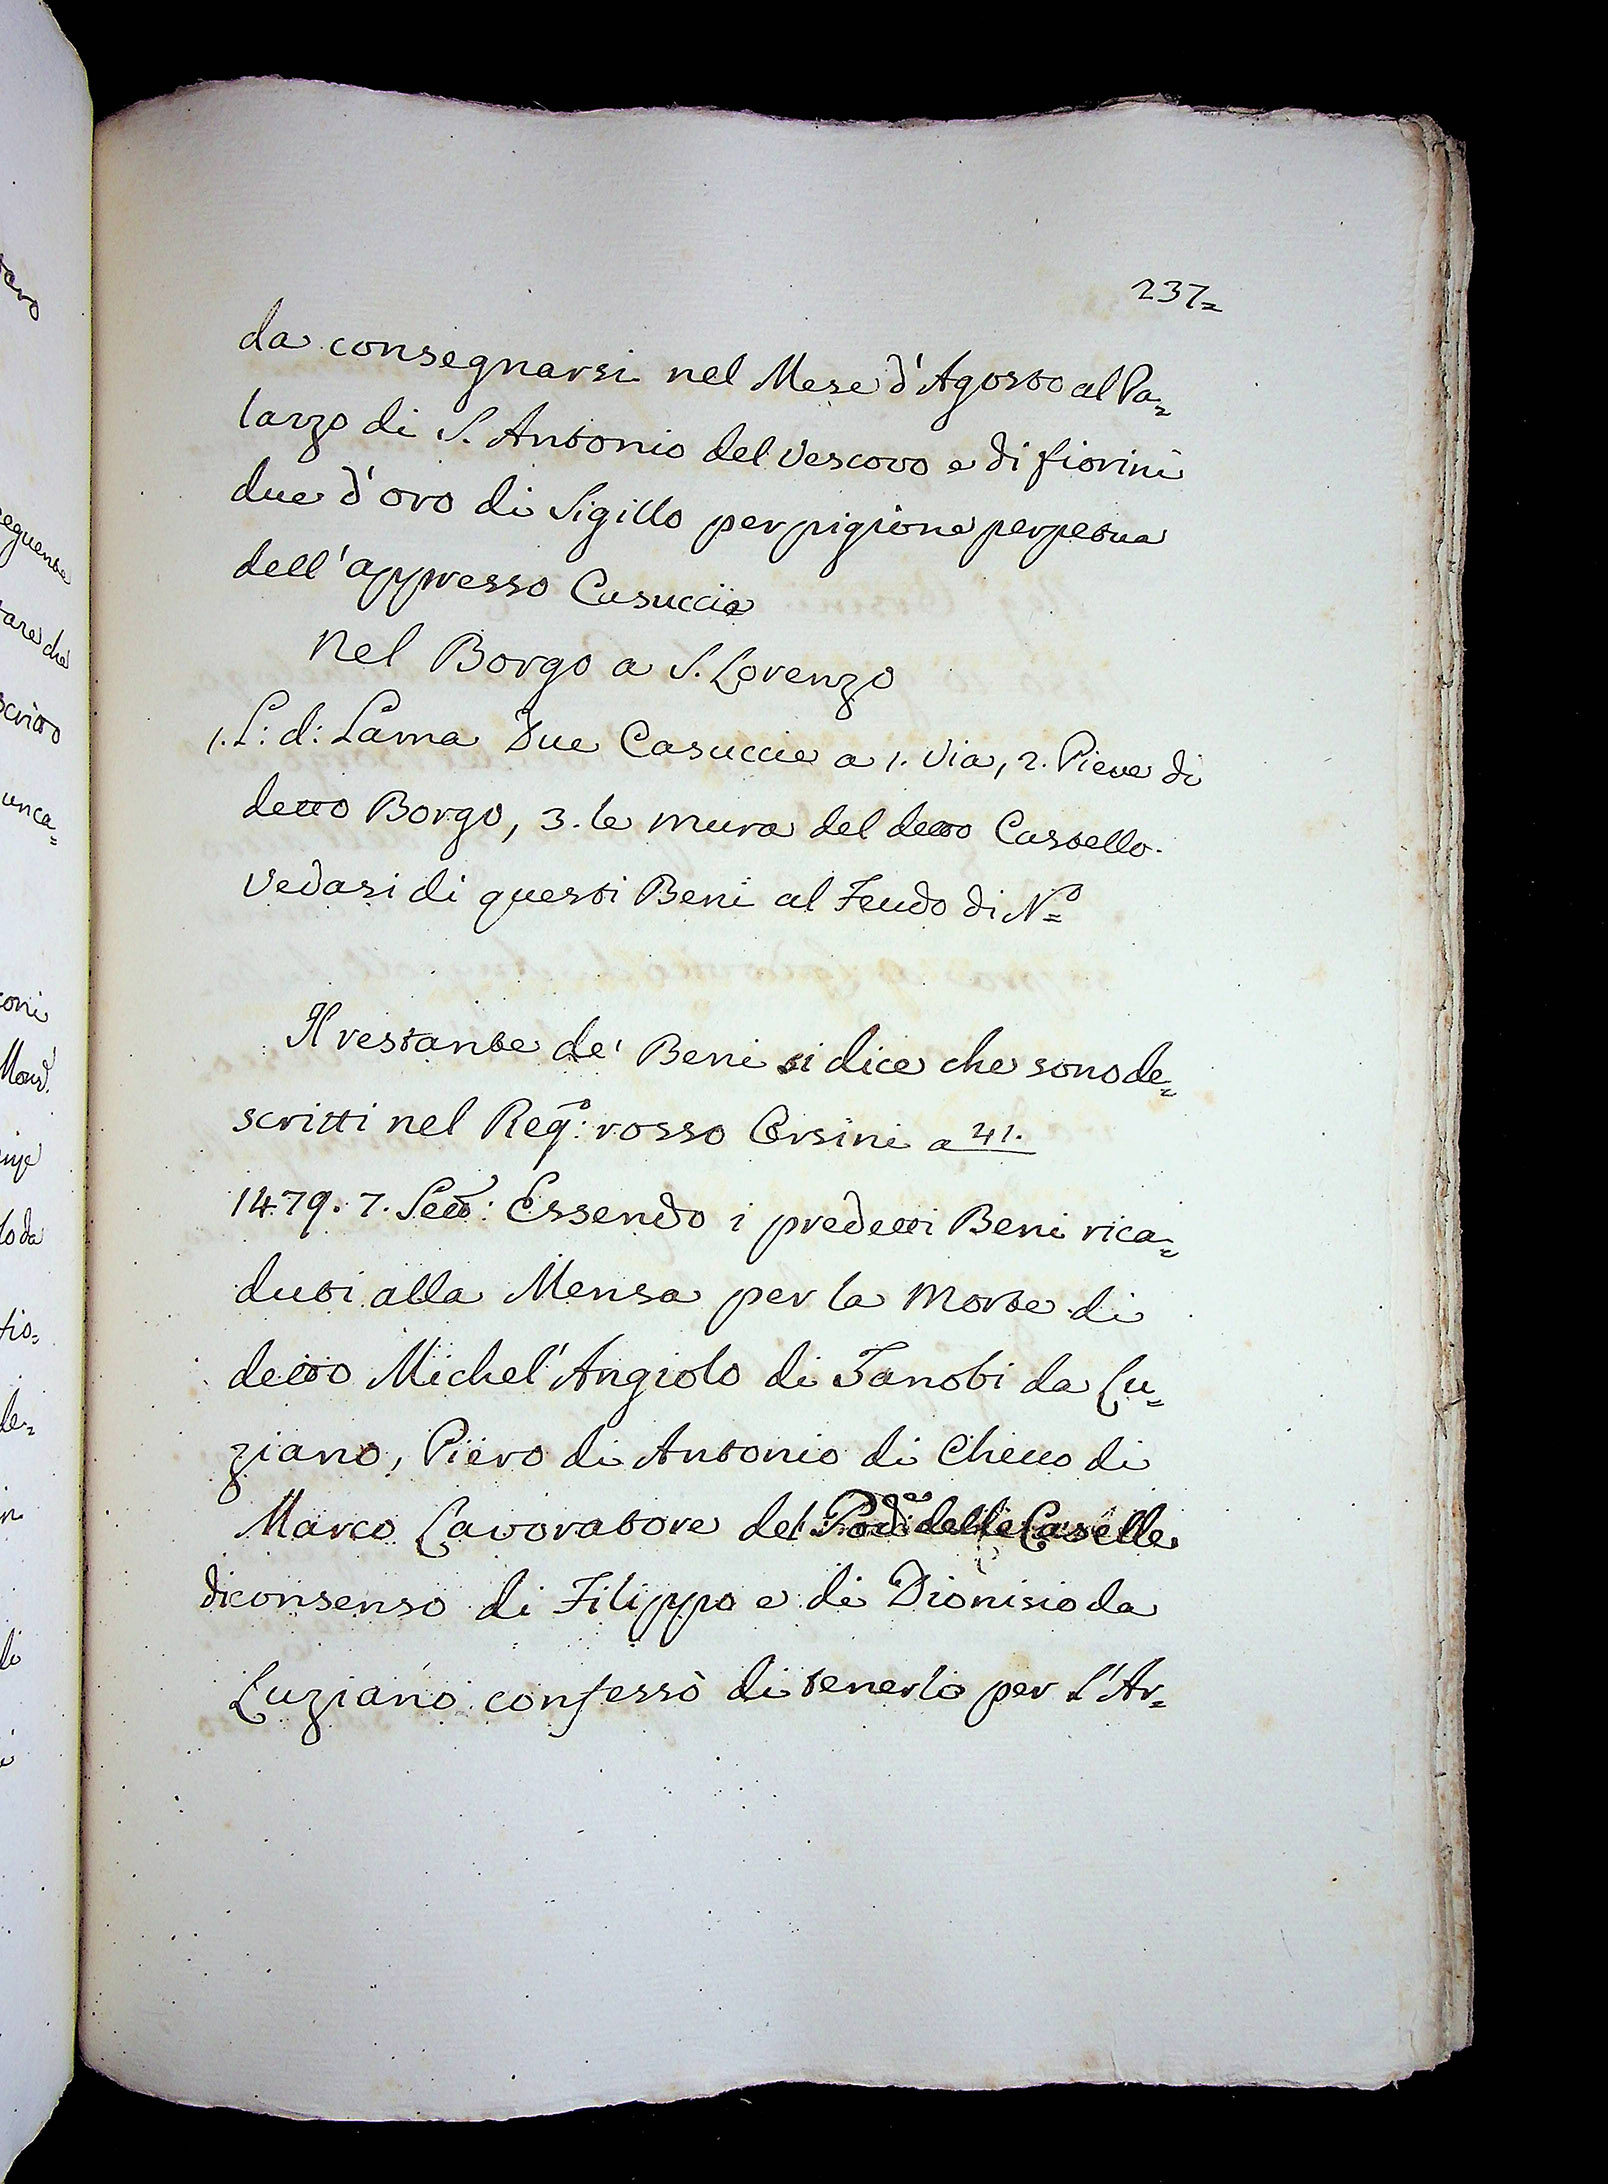 237=
da consegnarsi nel Mese d'Agosto al Pa=
lazzo di S. Antonio del Vescovo e di fiorini
due d'oro di Sigillo per pigione perpetua
dell'appresso Casuccie
Nel Borgo a S. Lorenzo
1. L: d: Lama Due Casuccie a 1. Via, 2. Pieve di
detto Borgo, 3. le mura del detto Castello.
Vedasi di questi Beni al Feudo di N.º=
Il restante de' Beni si dice che sono de=
scritti nel Regº: rosso Orsini a 41.
1479. 7. Setto: Essendo i predetti Beni rica=
duti alla Mensa per la Morte di
detto Michel'Angiolo di Zanobi da Lu=
ziano, Piero di Antonio di Checco di
Marco Lavoratore del Pod.re delle Caselle
di consenso di Filippo e di Dionisio da
Luziano confessò di tenerlo per l'Ar=